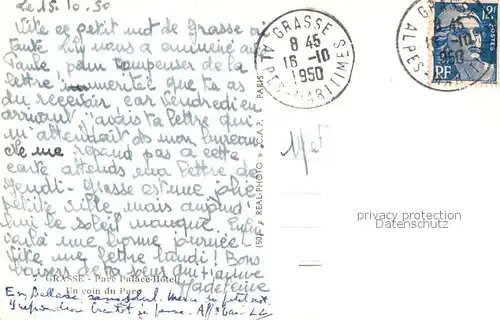 Le 15.10.50
Vite ce petit mot de Grasse où
tante Lily nous a amené
Paule pour compenser de la
lettre imméritée que tu as
dû recevoir car Vendredi en
arrivant j'avais ta lettre qui
m'attendait ds mon bureau
Ne me répond pas à cette
carte attends ma lettre de
Jeudi. Grasse est une jolie
petite ville mais aujourd'
hui le soleil manque. Enfin
voilà une bonne journée.
Vite une lettre lundi! Bons
baisers de ta sœur qui t'aime
Madeleine
7 - GRASSE - Parc Palace-Hôtel
Un coin du Parc
Merci petit mot
bientôt je pense.
(50) « REAL-PHOTO » C.A.P. PARIS
GRASSE
8 45
16 -10
1950
ALPES-MARITIMES
GRASSE
45
16 -10
1950
ALPES-MARITIMES
12F
RF
privacy protection
Datenschutz